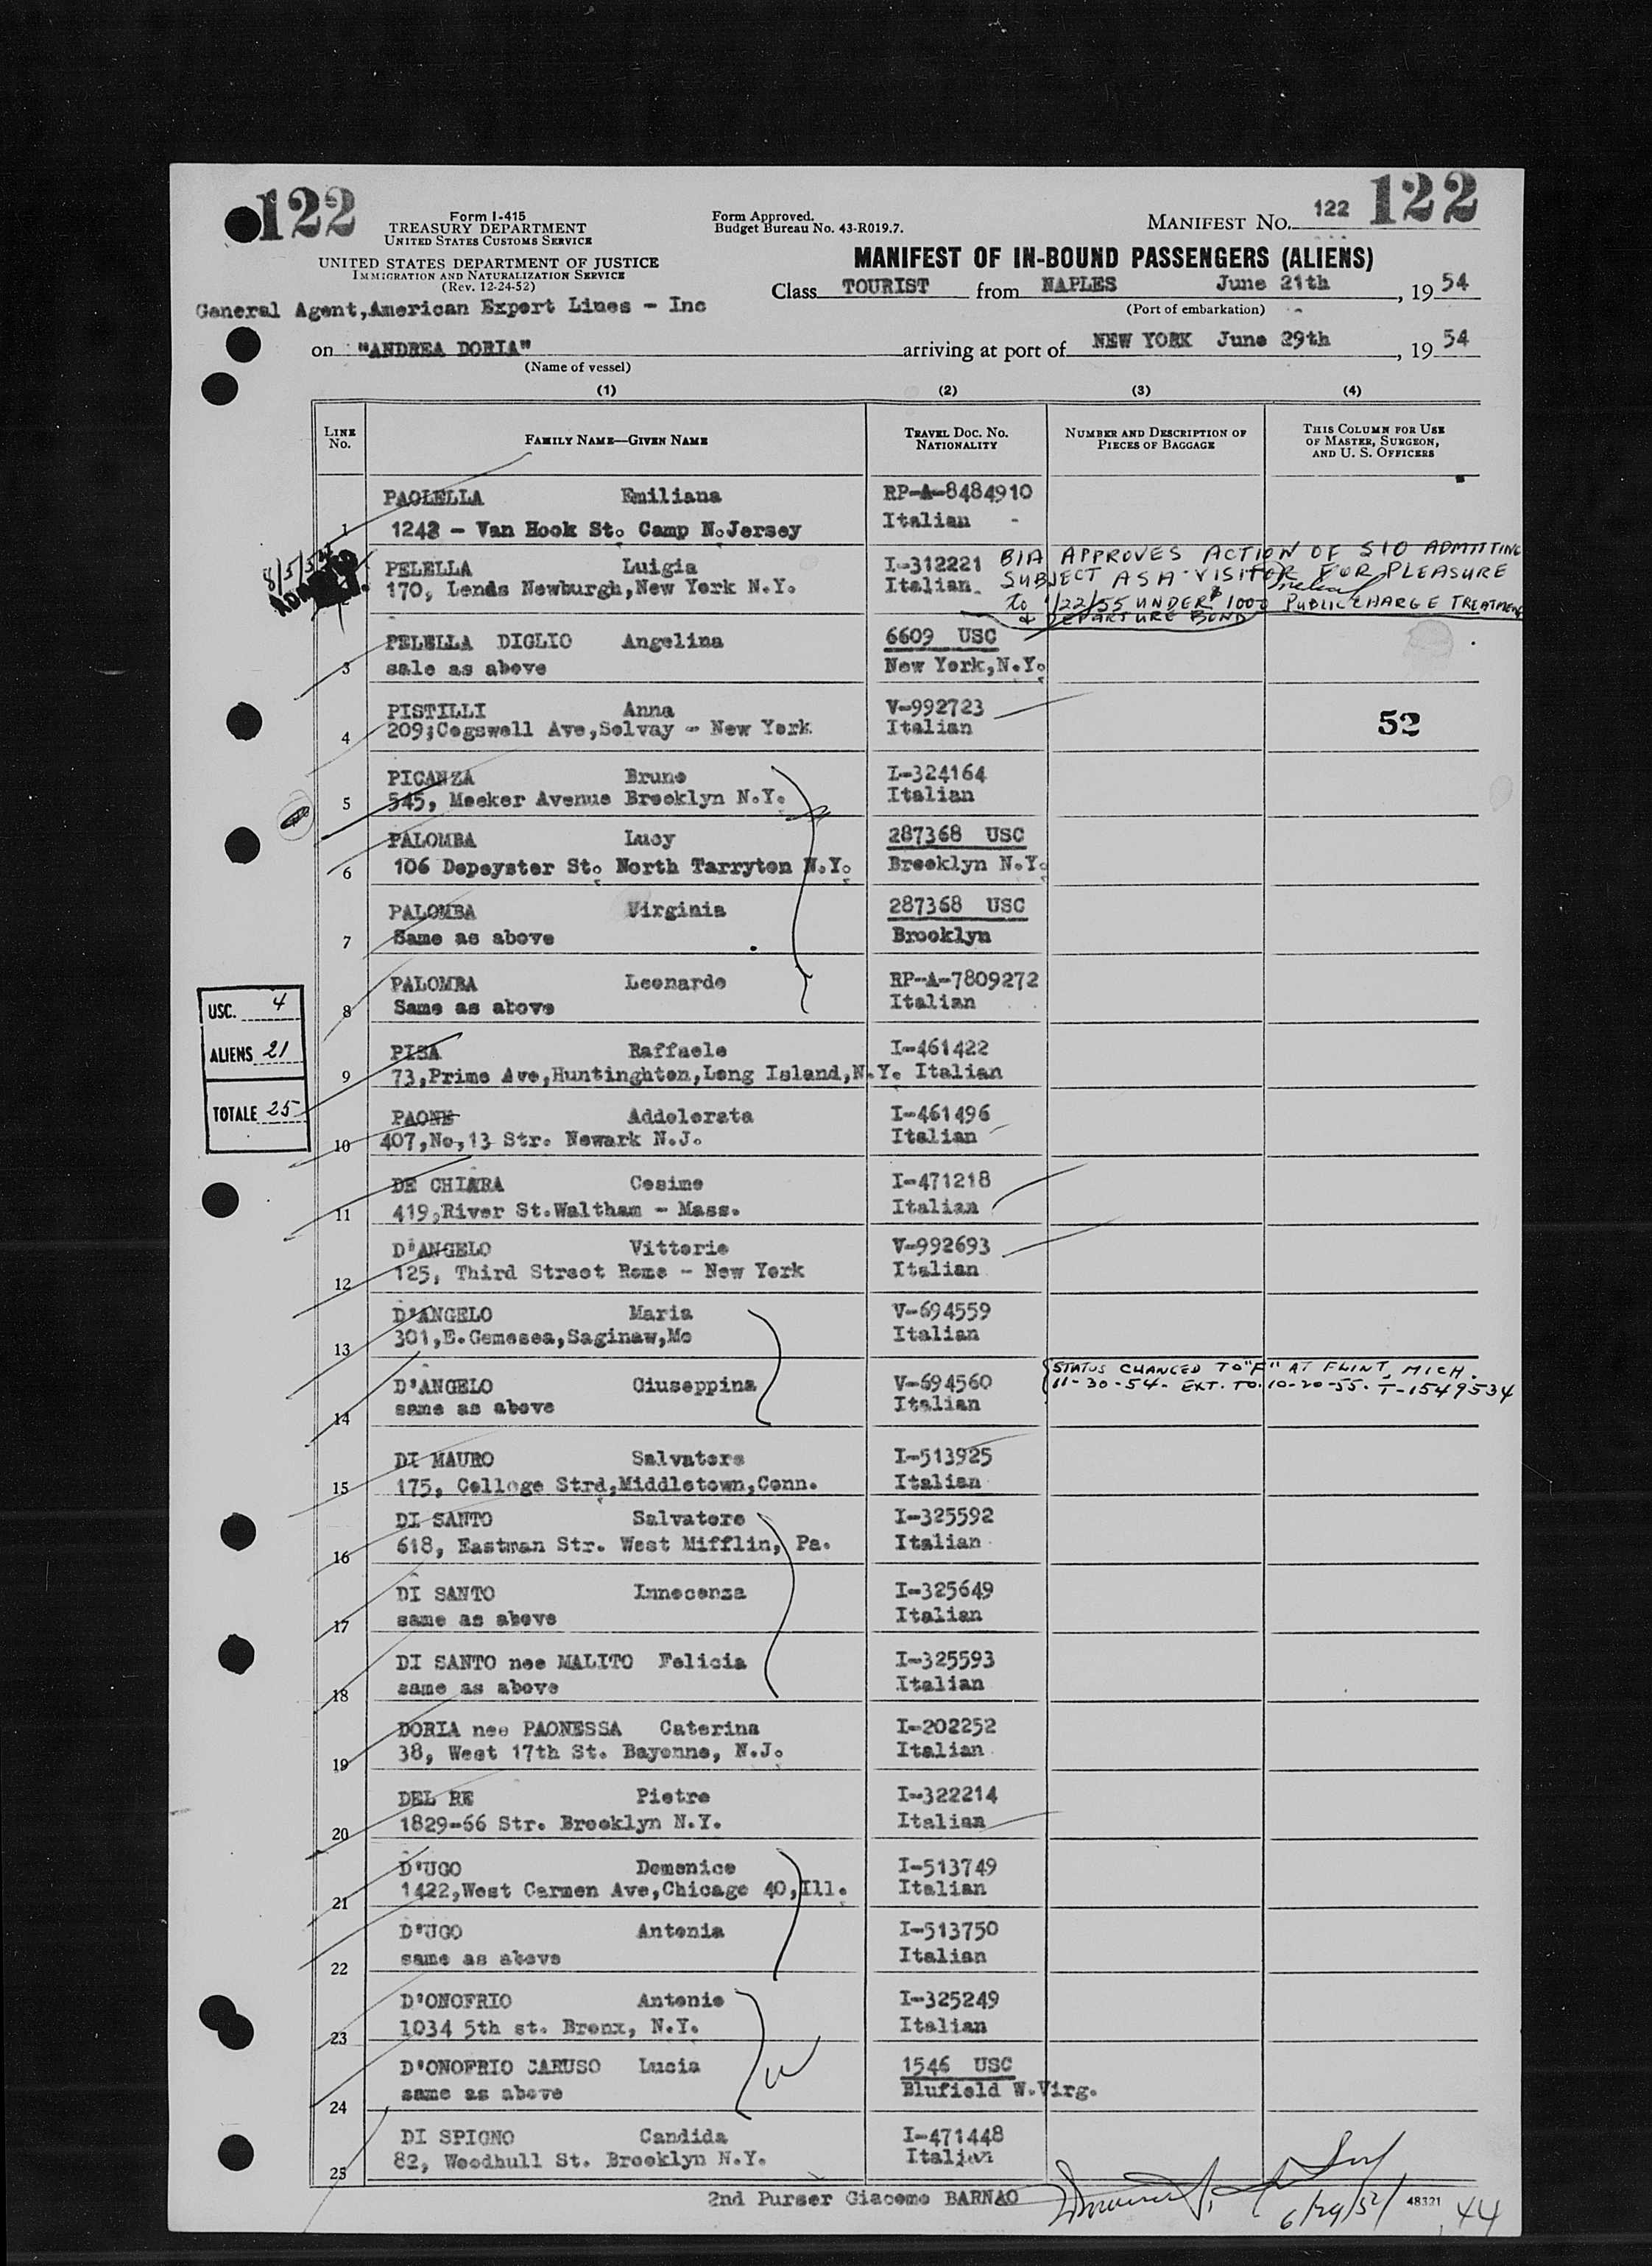 122
Form I-415
TREASURY DEPARTMENT
UNITED STATES CUSTOMS SERVICE
UNITED STATES DEPARTMENT OF JUSTICE
IMMIGRATION AND NATURALIZATION SERVICE
(Rev. 12-24-52)
General Agent,American Export Lines - Inc
Form Approved.
Budget Bureau No. 43-R019.7.
MANIFEST No. 122 122
MANIFEST OF IN-BOUND PASSENGERS (ALIENS)
Class TOURIST from NAPLES June 21th, 19 54
(Port of embarkation)
on "ANDREA DORIA" arriving at port of NEW YORK June 29th, 19 54
(Name of vessel)
(1) (2) (3) (4)
LINE No. FAMILY NAME—GIVEN NAME TRAVEL DOC. NO. NATIONALITY NUMBER AND DESCRIPTION OF PIECES OF BAGGAGE THIS COLUMN FOR USE OF MASTER, SURGEON, AND U. S. OFFICERS
PAOLELLA Emiliana RP-A-8484910
1 1243 - Van Hook St. Camp N.Jersey Italian -
8/5/54
PELELLA Luigia I-312221
170, Lends Newburgh,New York N.Y. Italian.
BIA APPROVES ACTION OF SIO ADMITTING
SUBJECT AS A VISITOR FOR PLEASURE
to 1/22/55 UNDER $1000 PUBLIC CHARGE TREATMENT
& DEPARTURE BOND
PELELLA DIGLIO Angelina 6609 USC
3 sale as above New York,N.Y.
PISTILLI Anna V-992723
4 209;Cogswell Ave,Solvay - New York Italian
52
PICANZA Bruno I-324164
5 545, Meeker Avenue Brooklyn N.Y. Italian
PALOMBA Lucy 287368 USC
6 106 Depeyster St. North Tarryton N.Y. Brooklyn N.Y.
PALOMBA Virginia 287368 USC
7 Same as above Brooklyn
PALOMBA Leonardo RP-A-7809272
8 Same as above Italian
USC. 4
ALIENS 21
TOTALE 25
PISA Raffaele I-461422
9 73,Prime Ave,Huntinghton,Long Island,N.Y. Italian
PAONE Addolorata I-461496
10 407,No,13 Str. Newark N.J. Italian
DE CHIARA Cosimo I-471218
11 419,River St.Waltham - Mass. Italian
D'ANGELO Vittorio V-992693
12 125, Third Street Rome - New York Italian
D'ANGELO Maria V-694559
13 301,E.Gemesea,Saginaw,Mo Italian
D'ANGELO Giuseppina V-694560
14 same as above Italian
STATUS CHANGED TO "F" AT FLINT, MICH.
11-30-54. EXT. TO. 10-20-55. T-1549534
DI MAURO Salvatore I-513925
15 175, College Strd,Middletown,Conn. Italian
DI SANTO Salvatore I-325592
16 618, Eastman Str. West Mifflin, Pa. Italian
DI SANTO Innocenza I-325649
17 same as above Italian
DI SANTO nee MALITO Felicia I-325593
18 same as above Italian
DORIA nee PAONESSA Caterina I-202252
19 38, West 17th St. Bayonne, N.J. Italian
DEL RE Pietro I-322214
20 1829-66 Str. Brooklyn N.Y. Italian
D'UGO Domenico I-513749
21 1422,West Carmen Ave,Chicago 40,Ill. Italian
D'UGO Antonia I-513750
22 same as above Italian
D'ONOFRIO Antonio I-325249
23 1034 5th st. Bronx, N.Y. Italian
D'ONOFRIO CARUSO Lucia 1546 USC
24 same as above Blufield W.Virg.
DI SPIGNO Candida I-471448
25 82, Woodhull St. Brooklyn N.Y. Italian
2nd Purser Giacomo BARNAO
6/29/54
48321
44